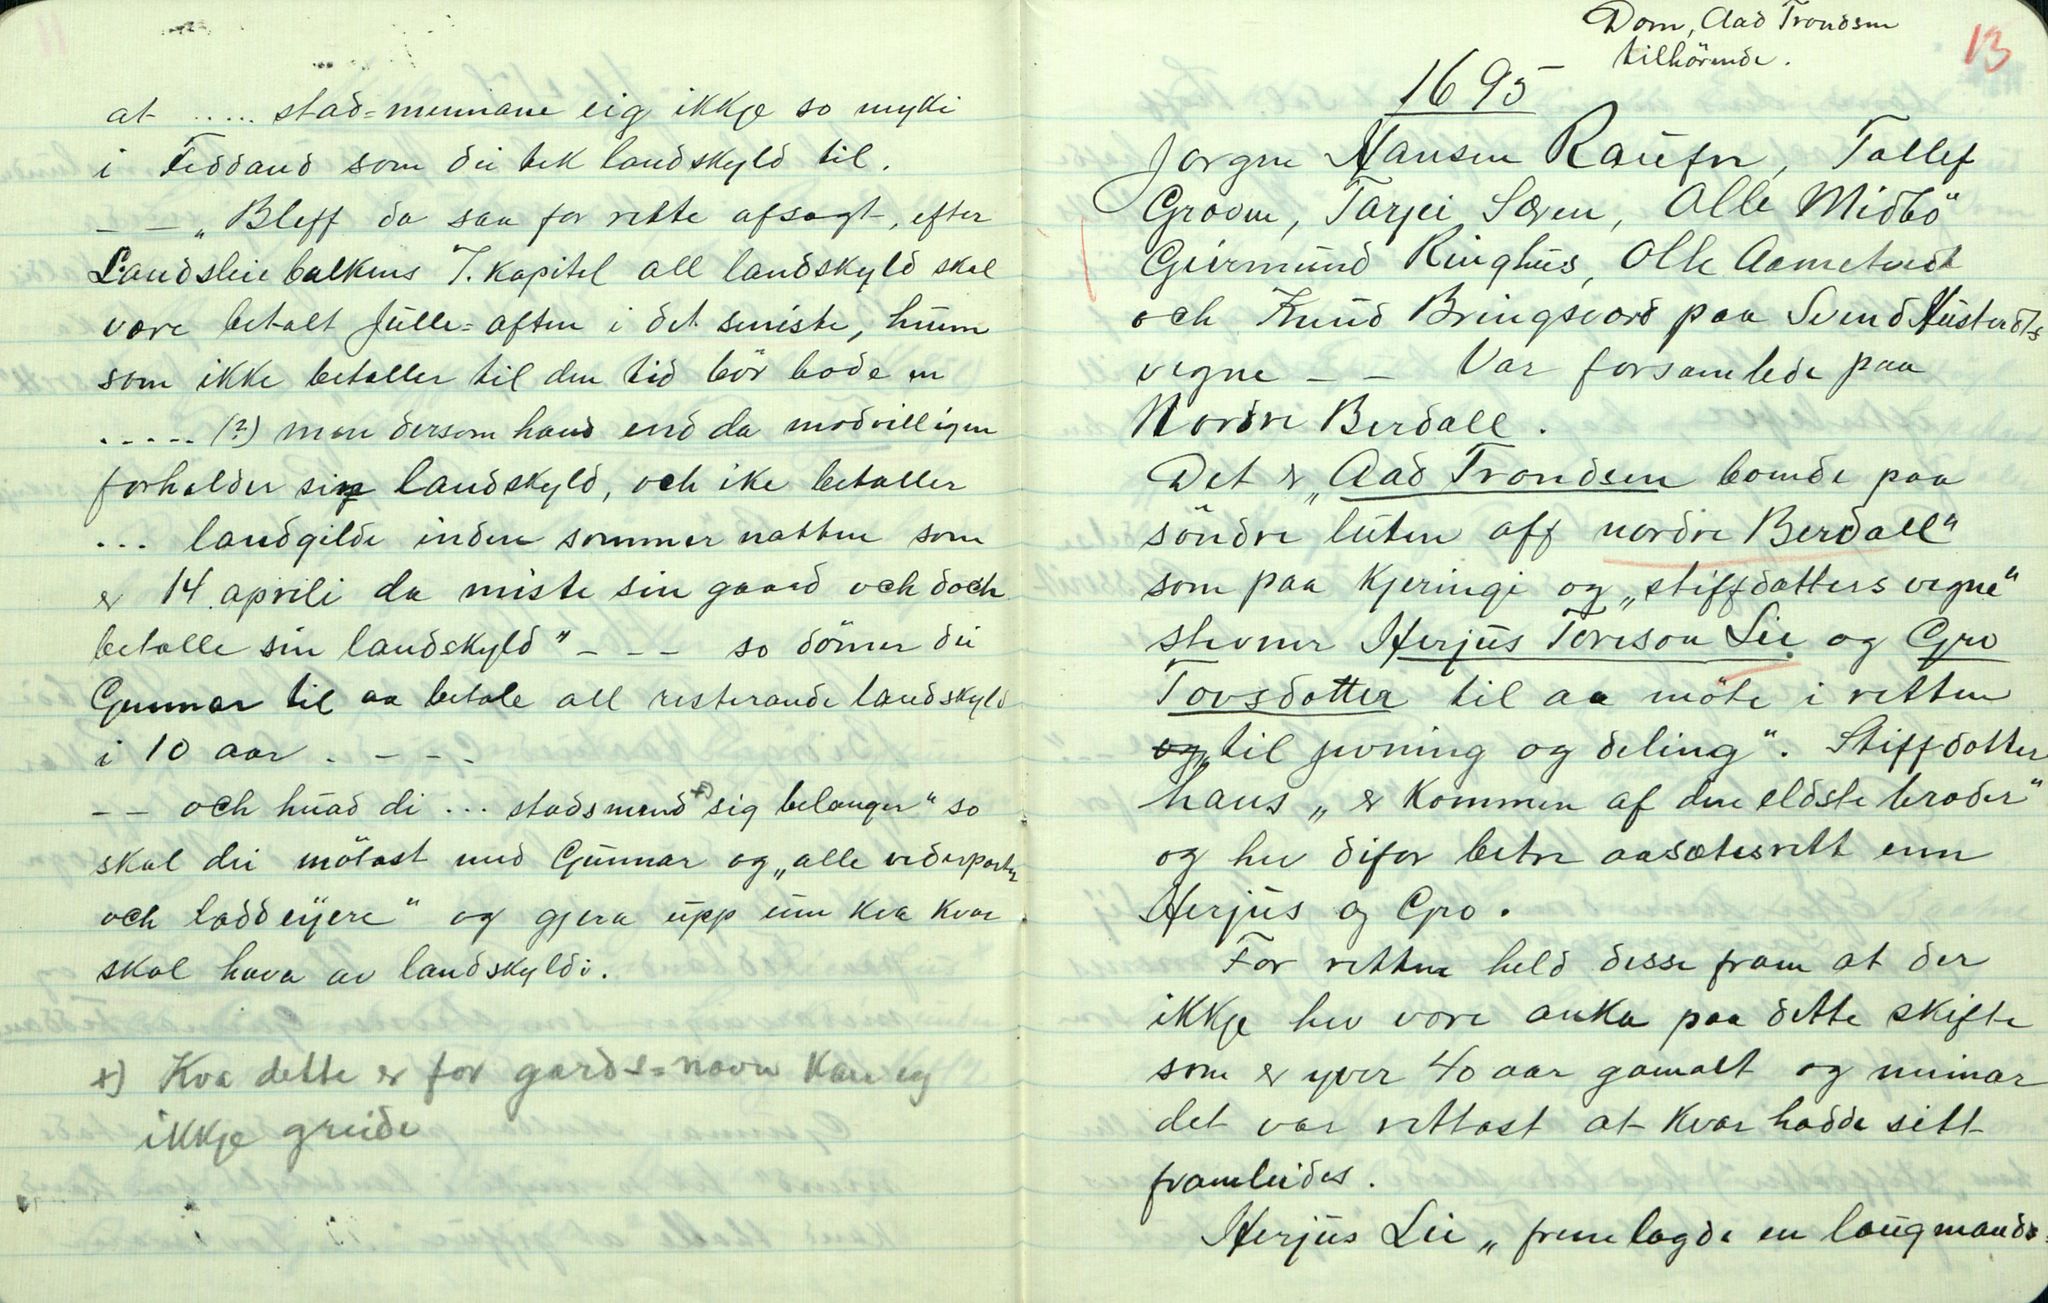 at ..... stad=mennane eig ikkje so myki
i Feddand som dei tek landskyld til.
– – „Bleff da saa for rette afsagt, efter
Landsleie balkens 7. kapitel all landskyld skal
være betalt Jülle=aften i det seniste, huem
som ikke betaller til den tid bör bøde en
..... (?) men dersom hand end da modvilligen
forholder sin landskyld, och ike betaller
... landgilde inden sommer natten som
er 14. aprili da miste sin gaard och doch
betalle sin landskyld" – – – so dömer dei
Gunnar til aa betale all resterande landskyld
i 10 aar . – – –
– – och huad di ... stadsmend +) sig belanger" so
skal dei mötast med Gunnar og „alle vederparter
och lodd eÿere" og gjera upp um kva kvar
skal hava av landskyldi.
+) Kva dette er for gards=navn kan eg
ikkje greide
Dom, Aad Trondsen
tilhörende.
13
1695
Jørgen Hansen Raüfn, Tollef
Groven, Tarjei Særen, Olle Midbö
Geirmünd Ringhüs, Olle Aamctvedt
och Knud Bringsvord paa Svend Hüstvedts
vegne – – Var forsamlede paa
Nordre Berdall.
Det er „Aad Trondsen boende paa
söndre lüten aff nordre Berdall"
som paa kjeringi og „stiffdatters vegne"
stevner Herjüs Toveson Lie og Gro
Tovsdotter til aa möte i retten
og „til jevning og deling". Stiffdotter
hans „er kommen af den eldste broder"
og hev difor betre aasætesrett enn
Herjüs og Gro.
For retten held desse fram at der
ikkje hev vore anka paa dette skifte
som er yver 40 aar gamalt og meinar
det var rettast at kvar hadde sitt
framleides.
Herjüs Lie „fremlagde en laügmands=